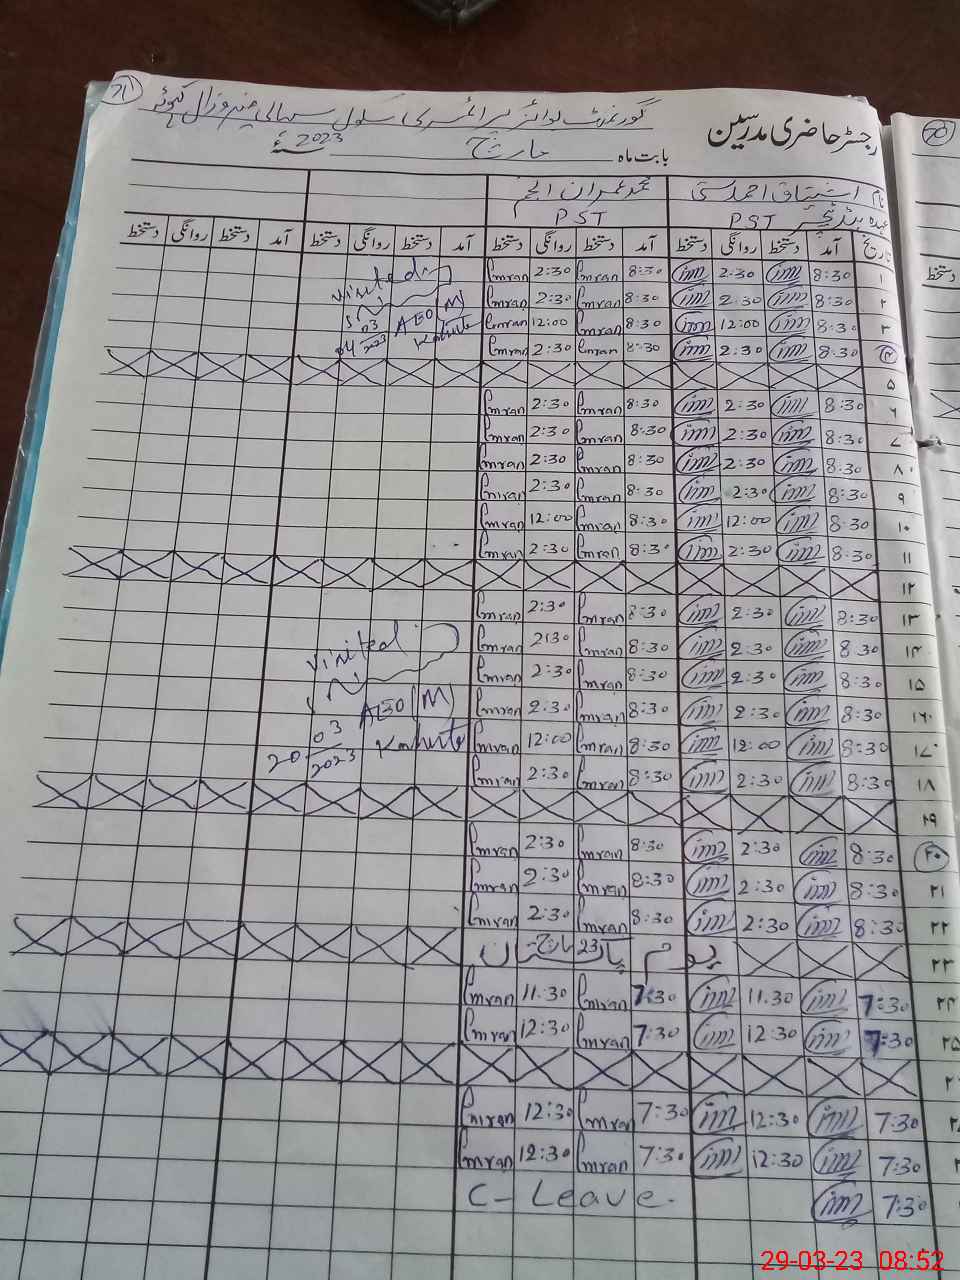 رجسٹر حاضری مدرسین
گورنمنٹ بوائز پرائمری سکول
بابت ماہ مارچ 2023
نام اشتیاق احمد ستی محمد عمران انجم
عہدہ PST PST
تاریخ آمد دستخط روانگی دستخط آمد دستخط روانگی دستخط آمد دستخط روانگی دستخط آمد دستخط روانگی دستخط
۱ 8:30 im 2:30 im 8:30 Imran 2:30 Imran
۲ 8:30 im 2:30 im 8:30 Imran 2:30 Imran
۳ 8:30 im 12:00 im 8:30 Imran 12:00 Imran
۴ 8:30 im 2:30 im 8:30 Imran 2:30 Imran
visited
AEO (M)
Kahuta
04 03 2023
۵
۶ 8:30 im 2:30 im 8:30 Imran 2:30 Imran
۷ 8:30 im 2:30 im 8:30 Imran 2:30 Imran
۸ 8:30 im 2:30 im 8:30 Imran 2:30 Imran
۹ 8:30 im 2:30 im 8:30 Imran 2:30 Imran
۱۰ 8:30 im 12:00 im 8:30 Imran 12:00 Imran
۱۱ 8:30 im 2:30 im 8:30 Imran 2:30 Imran
۱۲
۱۳ 8:30 im 2:30 im 8:30 Imran 2:30 Imran
۱۴ 8:30 im 2:30 im 8:30 Imran 2:30 Imran
۱۵ 8:30 im 2:30 im 8:30 Imran 2:30 Imran
۱۶ 8:30 im 2:30 im 8:30 Imran 2:30 Imran
۱۷ 8:30 im 12:00 im 8:30 Imran 12:00 Imran
۱۸ 8:30 im 2:30 im 8:30 Imran 2:30 Imran
visited
AEO (M)
Kahuta
20 03 2023
۱۹
۲۰ 8:30 im 2:30 im 8:30 Imran 2:30 Imran
۲۱ 8:30 im 2:30 im 8:30 Imran 2:30 Imran
۲۲ 8:30 im 2:30 im 8:30 Imran 2:30 Imran
۲۳ یوم پاکستان 23 مارچ
۲۴ 7:30 im 11.30 im 7:30 Imran 11:30 Imran
۲۵ 7:30 im 12:30 im 7:30 Imran 12:30 Imran
7:30 im 12:30 im 7:30 Imran 12:30 Imran
7:30 im 12:30 im 7:30 Imran 12:30 Imran
7:30 im C-Leave.
دستخط
29-03-23 08:52